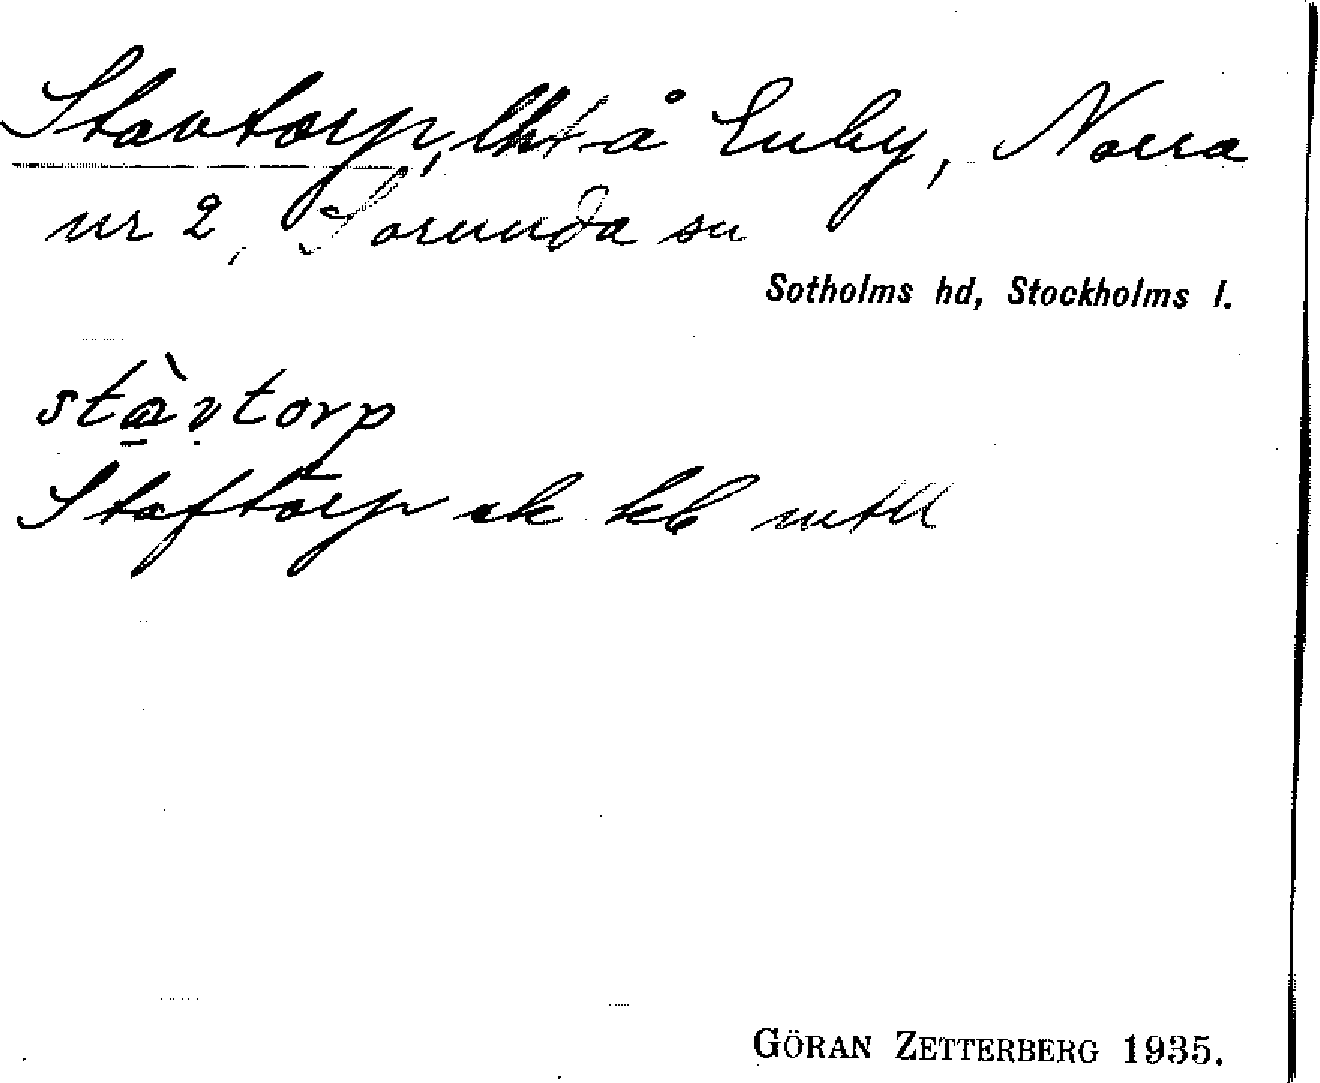 Stavtorp, lht å Enby, Norra
nr 2, Sorunda sn
Sotholms hd, Stockholms l.
stàvtorp
Staftorp ek kb mtll
GÖRAN ZETTERBERG 1935.